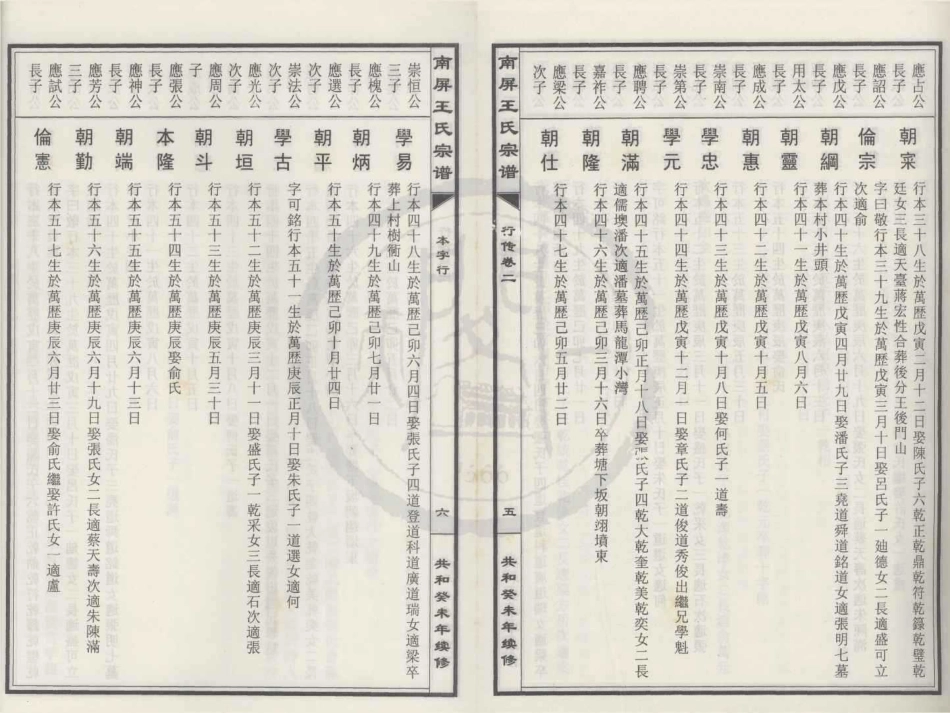 應占公長子
朝寀
行本三十八生於萬歷戊寅二月十二日娶陳氏子六乾正乾鼎乾符乾籙乾璧乾
廷女三長適天臺蔣宏性合葬後分王後門山
應詔公長子
倫宗
字曰敬行本三十九生於萬歷戊寅三月十日娶呂氏子一廸德女二長適盛可立
次適俞
應戊公長子
朝綱
行本四十生於萬歷戊寅四月廿九日娶潘氏子三堯道舜道銘道女適張明七墓
葬本村小井頭
用太公次子
朝靈
行本四十一生於萬歷戊寅八月六日
應成公次子
朝惠
行本四十二生於萬歷戊寅十月五日
崇南公長子
學忠
行本四十三生於萬歷戊寅十月八日娶何氏子一道壽
崇第公長子
學元
行本四十四生於萬歷戊寅十二月一日娶章氏子二道俊道秀俊出繼兄學魁
應聘公長子
朝滿
行本四十五生於萬歷己卯正月十八日娶張氏子四乾大乾奎乾美乾奕女二長
適儒墺潘次適潘墓葬馬龍潭小灣
嘉祚公長子
朝隆
行本四十六生於萬歷己卯三月十六日卒葬塘下坂朝翊墳東
應梁公次子
朝仕
行本四十七生於萬歷己卯五月廿二日
南屏王氏宗谱
行传卷二
五
共和癸未年续修
南屏王氏宗谱
本字行
六
共和癸未年续修
崇恒公三子
學易
行本四十八生於萬歷己卯六月四日娶張氏子四道登道科道廣道瑞女適梁卒
葬上村樹衕山
應槐公長子
朝炳
行本四十九生於萬歷己卯七月廿一日
應選公次子
朝平
行本五十生於萬歷己卯十月廿四日
崇法公次子
學古
字可銘行本五十一生於萬歷庚辰正月十日娶朱氏子一道選女適何
應光公次子
朝垣
行本五十二生於萬歷庚辰三月十一日娶盛氏子一乾采女三長適石次適張
應周公子
朝斗
行本五十三生於萬歷庚辰五月三十日
應張公長子
本隆
行本五十四生於萬歷庚辰娶俞氏
應神公長子
朝端
行本五十五生於萬歷庚辰六月十三日
應芳公三子
朝勤
行本五十六生於萬歷庚辰六月十九日娶張氏女二長適蔡天壽次適朱陳滿
應試公長子
倫憲
行本五十七生於萬歷庚辰六月廿三日娶俞氏繼娶許氏女一適盧